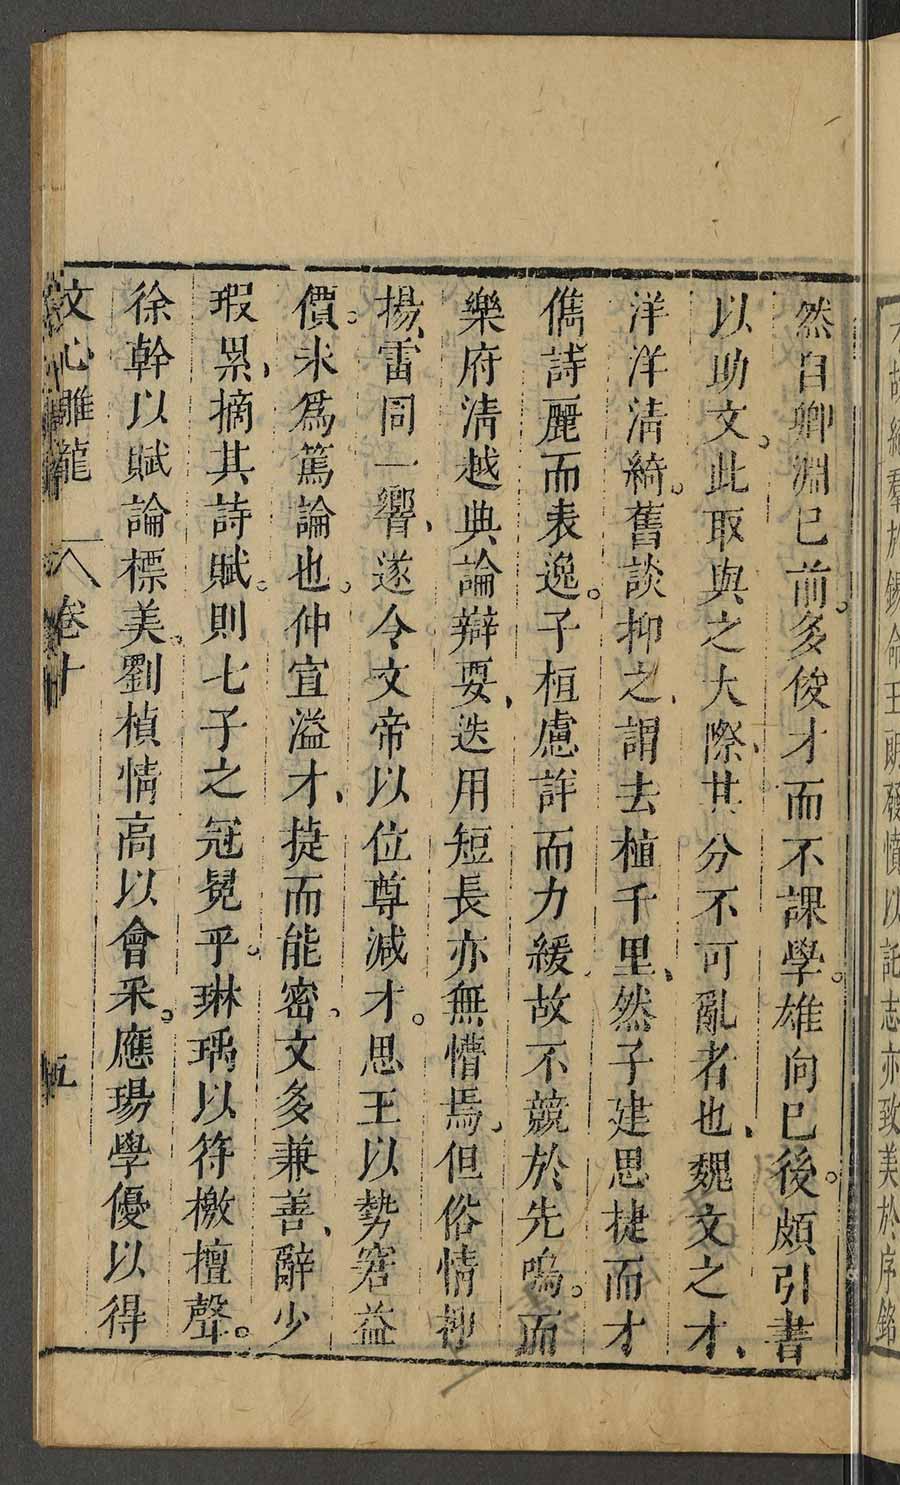 然自卿淵已前。多俊才而不課學。雄向已後。頗引書
以助文。此取與之大際、其分不可亂者也、魏文之才、
洋洋清綺。舊談抑之、謂去植千里、然子建思捷而才
儁詩麗而表逸。子桓慮詳而力緩故不競於先鳴。而
樂府清越典論辯要、迭用短長亦無懵焉。但俗情抑
揚、雷同一響、遂令文帝以位尊減才。思王以勢窘益
價。未爲篤論也。仲宣溢才、捷而能密、文多兼善、辭少
瑕累、摘其詩賦。則七子之冠冕乎。琳瑀以符檄擅聲。
徐幹以賦論標美。劉楨情高以會采。應瑒學優以得
文心雕龍 卷十 五
絲羣於錫命王朗發憤以託志亦致美於序銘